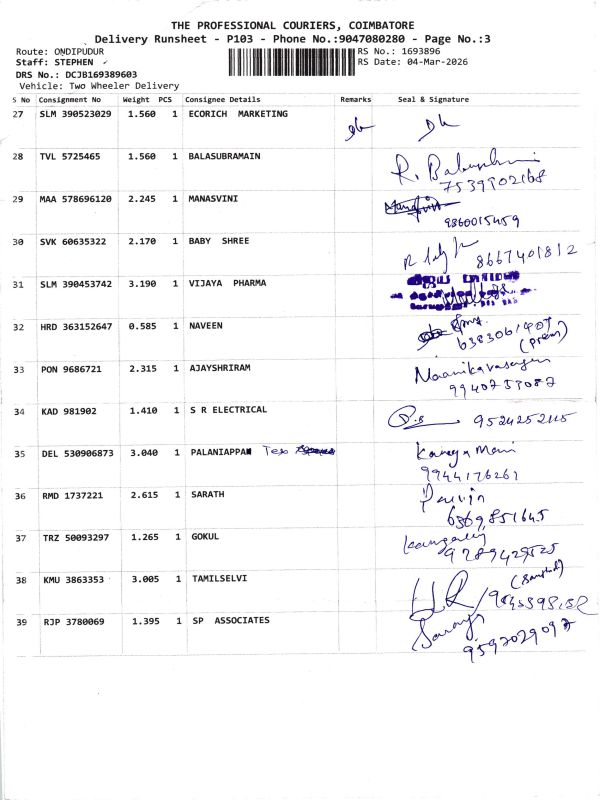 THE PROFESSIONAL COURIERS, COIMBATORE
Delivery Runsheet - P103 - Phone No.:9047080280 - Page No.:3
Route: ONDIPUDUR
RS No.: 1693896
Staff: STEPHEN
RS Date: 04-Mar-2026
DRS No.: DCJB169389603
Vehicle: Two Wheeler Delivery
S No Consignment No Weight PCS Consignee Details Remarks Seal & Signature
27 SLM 390523029 1.560 1 ECORICH MARKETING
28 TVL 5725465 1.560 1 BALASUBRAMAIN
7539902168
29 MAA 578696120 2.245 1 MANASVINI
9860015459
30 SVK 60635322 2.170 1 BABY SHREE
8667401812
31 SLM 390453742 3.190 1 VIJAYA PHARMA
32 HRD 363152647 0.585 1 NAVEEN
(prem)
33 PON 9686721 2.315 1 AJAYSHRIRAM
Maanikavasagan
9940753087
34 KAD 981902 1.410 1 S R ELECTRICAL
35 DEL 530906873 3.040 1 PALANIAPPAN
Kanaga Mani
9944176261
36 RMD 1737221 2.615 1 SARATH
Parvin
6369851645
37 TRZ 50093297 1.265 1 GOKUL
9789429525
38 KMU 3863353 3.005 1 TAMILSELVI
39 RJP 3780069 1.395 1 SP ASSOCIATES
9597029097